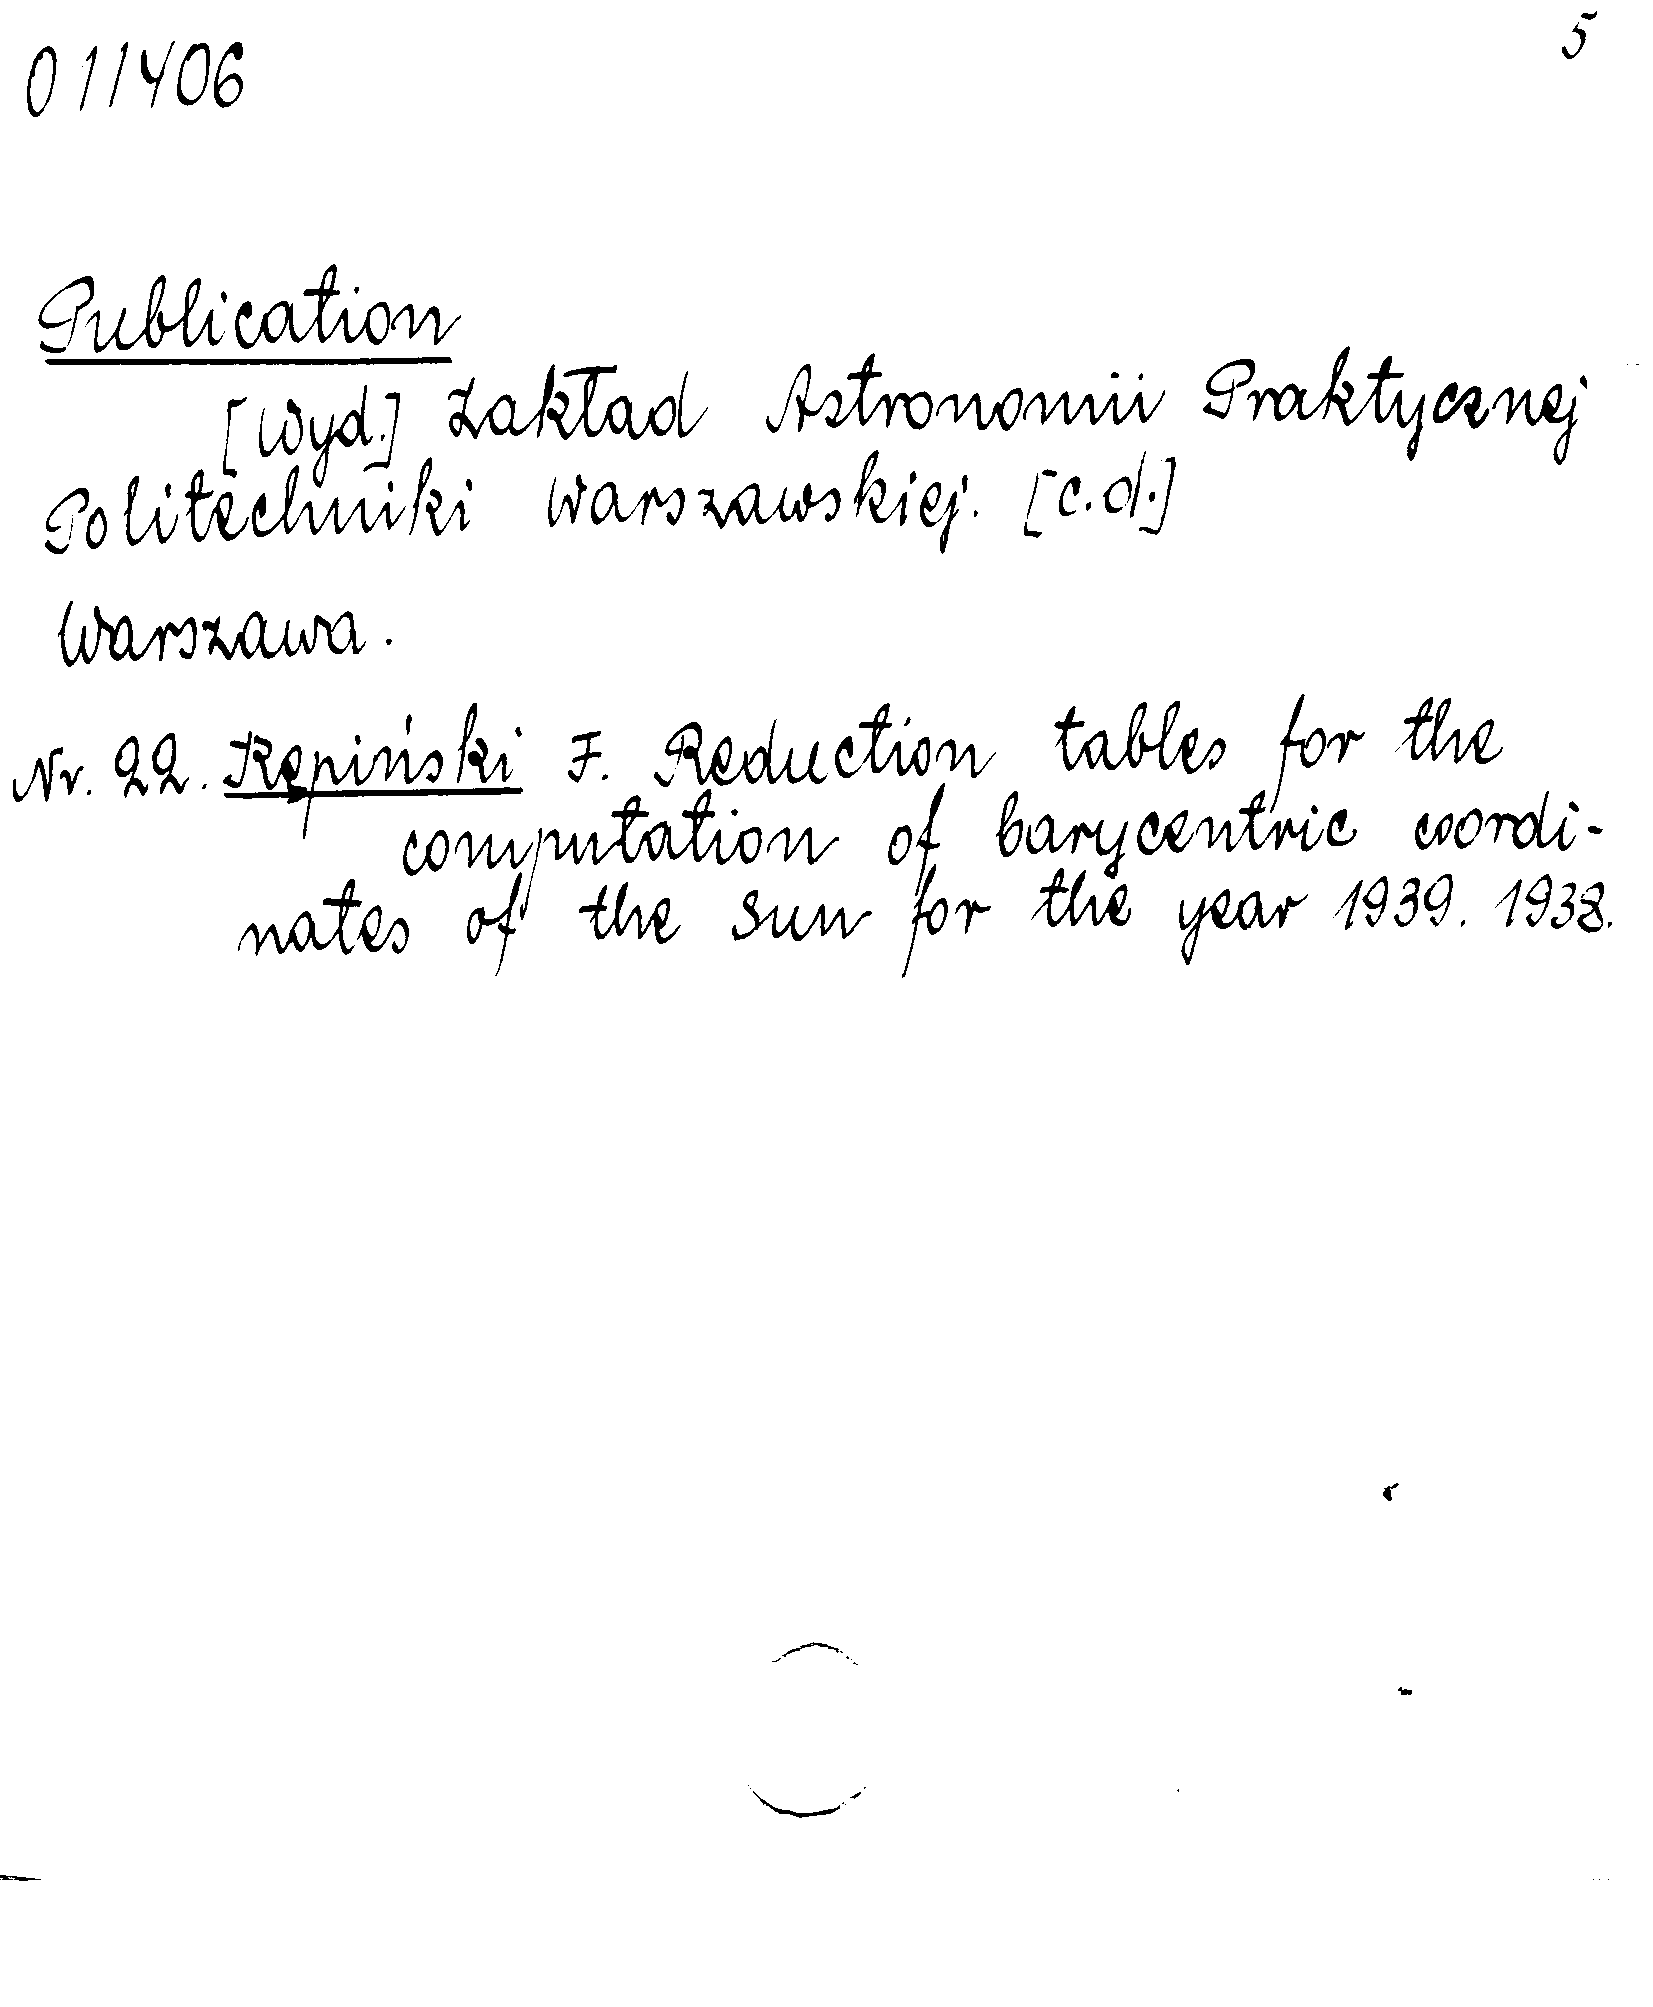 011406
5
Publication
[Wyd.] Zakład Astronomii Praktycznej
Politechniki Warszawskiej. [c.d.]
Warszawa.
Nr. 22. Kępiński F. Reduction tables for the
computation of barycentric coordi-
nates of the Sun for the year 1939. 1938.